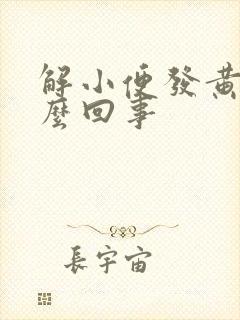 解小便發黃
麼回事
長宇宙